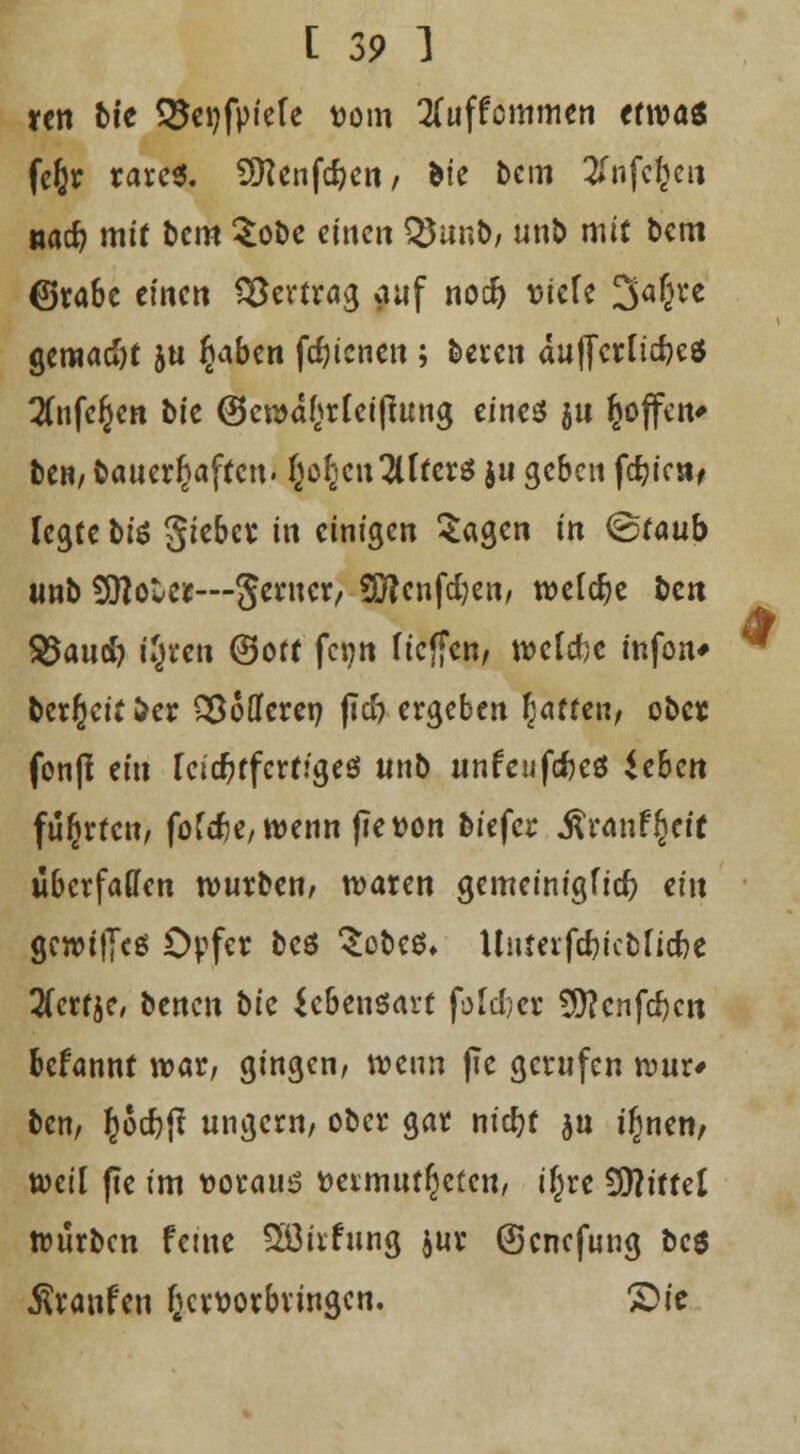 [ 39 ]
ren die Beyspiele vom Aufkommen etwas
sehr rares. Menschen, die dem Ansehen
nach mit dem Tode einen Bund, und mit dem
Grabe einen Vertrag auf noch viele Jahre
gemacht zu haben schienen; deren äusserliches
Ansehen die Gewährleistung eines zu hoffen-
den, dauerhaften, hohen Alters zu geben schien,
legte dis Fieber in einigen Tagen in Staub
und Moder---Ferner, Menschen, welche den
Bauch ihren Gott seyn liessen, welche inson-
derheit der Völlerey sich ergeben hatten, oder
sonst ein leichtfertiges und unkeusches Leben
führten, solche, wenn sie von dieser Krankheit
überfallen wurden, waren gemeiniglich ein
gewisses Opfer des Todes. Unterschiedliche
Aertze, denen die Lebensart solcher Menschen
bekannt war, gingen, wenn sie gerufen wur-
den, höchst ungern, oder gar nicht zu ihnen,
weil sie im voraus vermutheten, ihre Mittel
würden keine Wirkung zur Genesung des
Kranken hervorbringen. Die